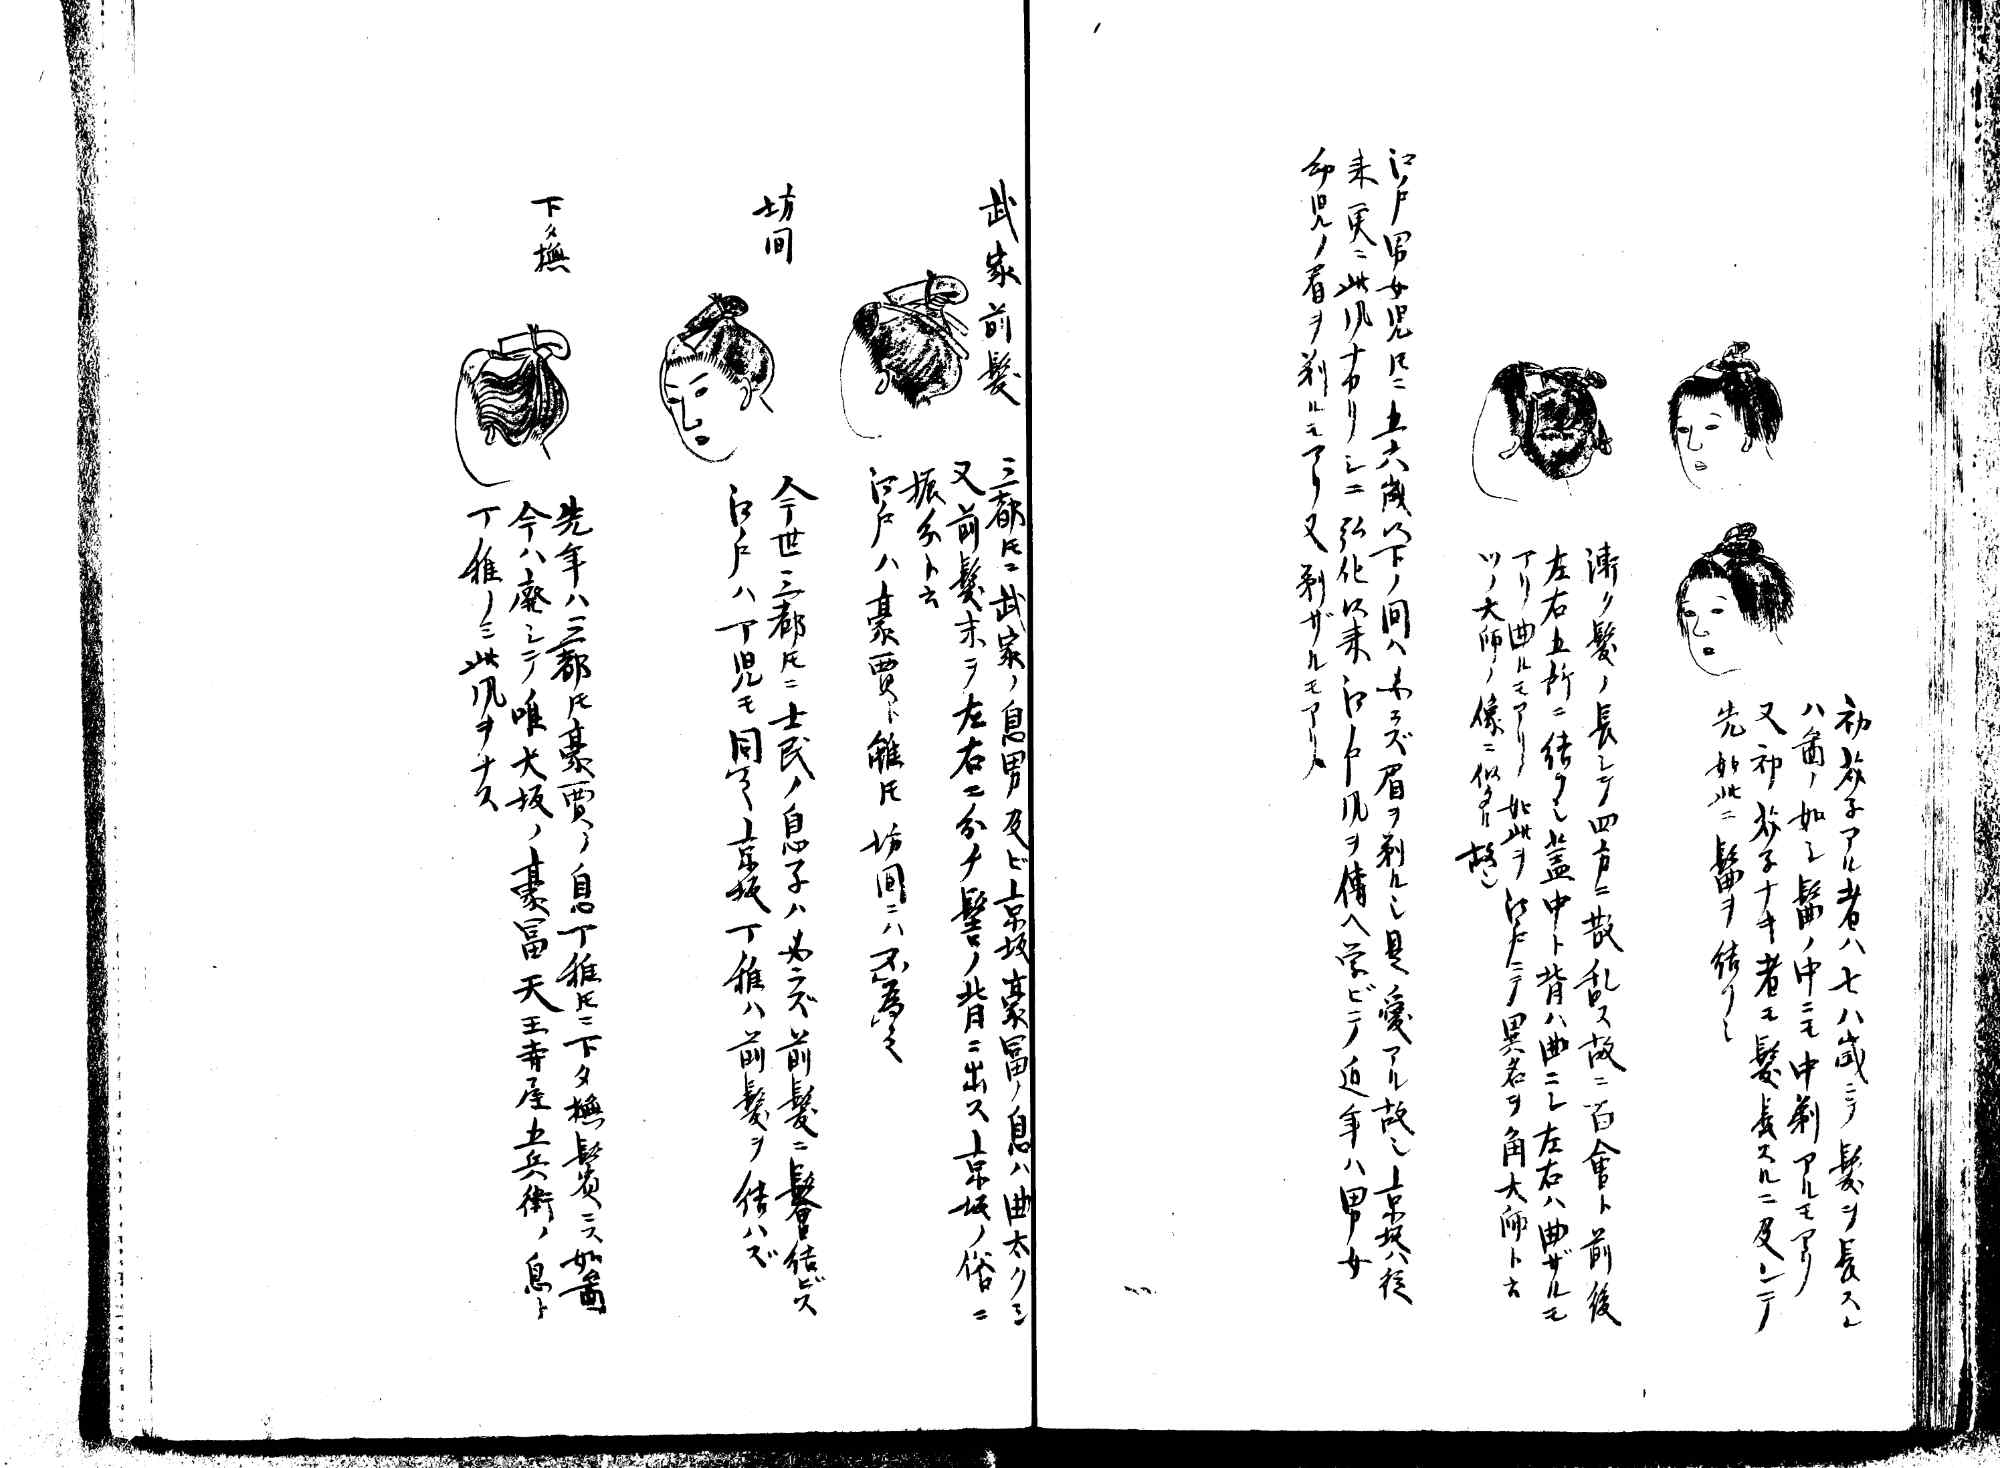 初芥子アル者ハ七八歳ニテ髪ヲ長スル
ハ啚ノ如シ髷ノ中ニモ中剃アルモアリ
又初芥子ナキ者モ髪長スルニ及ンテ
先如此ニ髷ヲ結フ也
漸ク髪ノ長シテ四方ニ散乱ス故ニ百會ト前後
左右五所ニ結フ也蓋中ト背ハ曲ニシ左右ハ曲ザルモ
アリ曲ルモアリ如此ヲ江戸ニテ異名ヲ角大師ト云
ツノ大師ノ像ニ似タル故也
江戸男女児トモニ五六歳以下ノ間ハ必ラズ眉ヲ剃ル也是愛アル故也京坂ハ従
来更ニ此風ナカリシニ弘化以来江戸風ヲ傳ヘ学ビテ近年ハ男女
幼児ノ眉ヲ剃ルモアリ又剃ザルモアリ
武家前髪
三都トモニ武家ノ息男及ビ京坂豪冨ノ息ハ曲太クシ
又前髪末ヲ左右エ分チ髻ノ背ニ出ス京坂ノ俗ニ
振分ト云
江戸ハ豪賈ト雖トモ坊間ニハ不為之
坊間
今世三都トモニ士民ノ息子ハ必ラズ前髪ニ髷結ビス
江戸ハ丁児モ同之京坂丁稚ハ前髪ヲ結ハズ
下タ撫
先年ハ三都トモ豪賈ノ息丁稚トモニ下タ撫鬂ニス如啚
今ハ廃シテ唯大坂ノ豪冨天王寺屋五兵衛ノ息ト
丁稚ノミ此風ヲナス